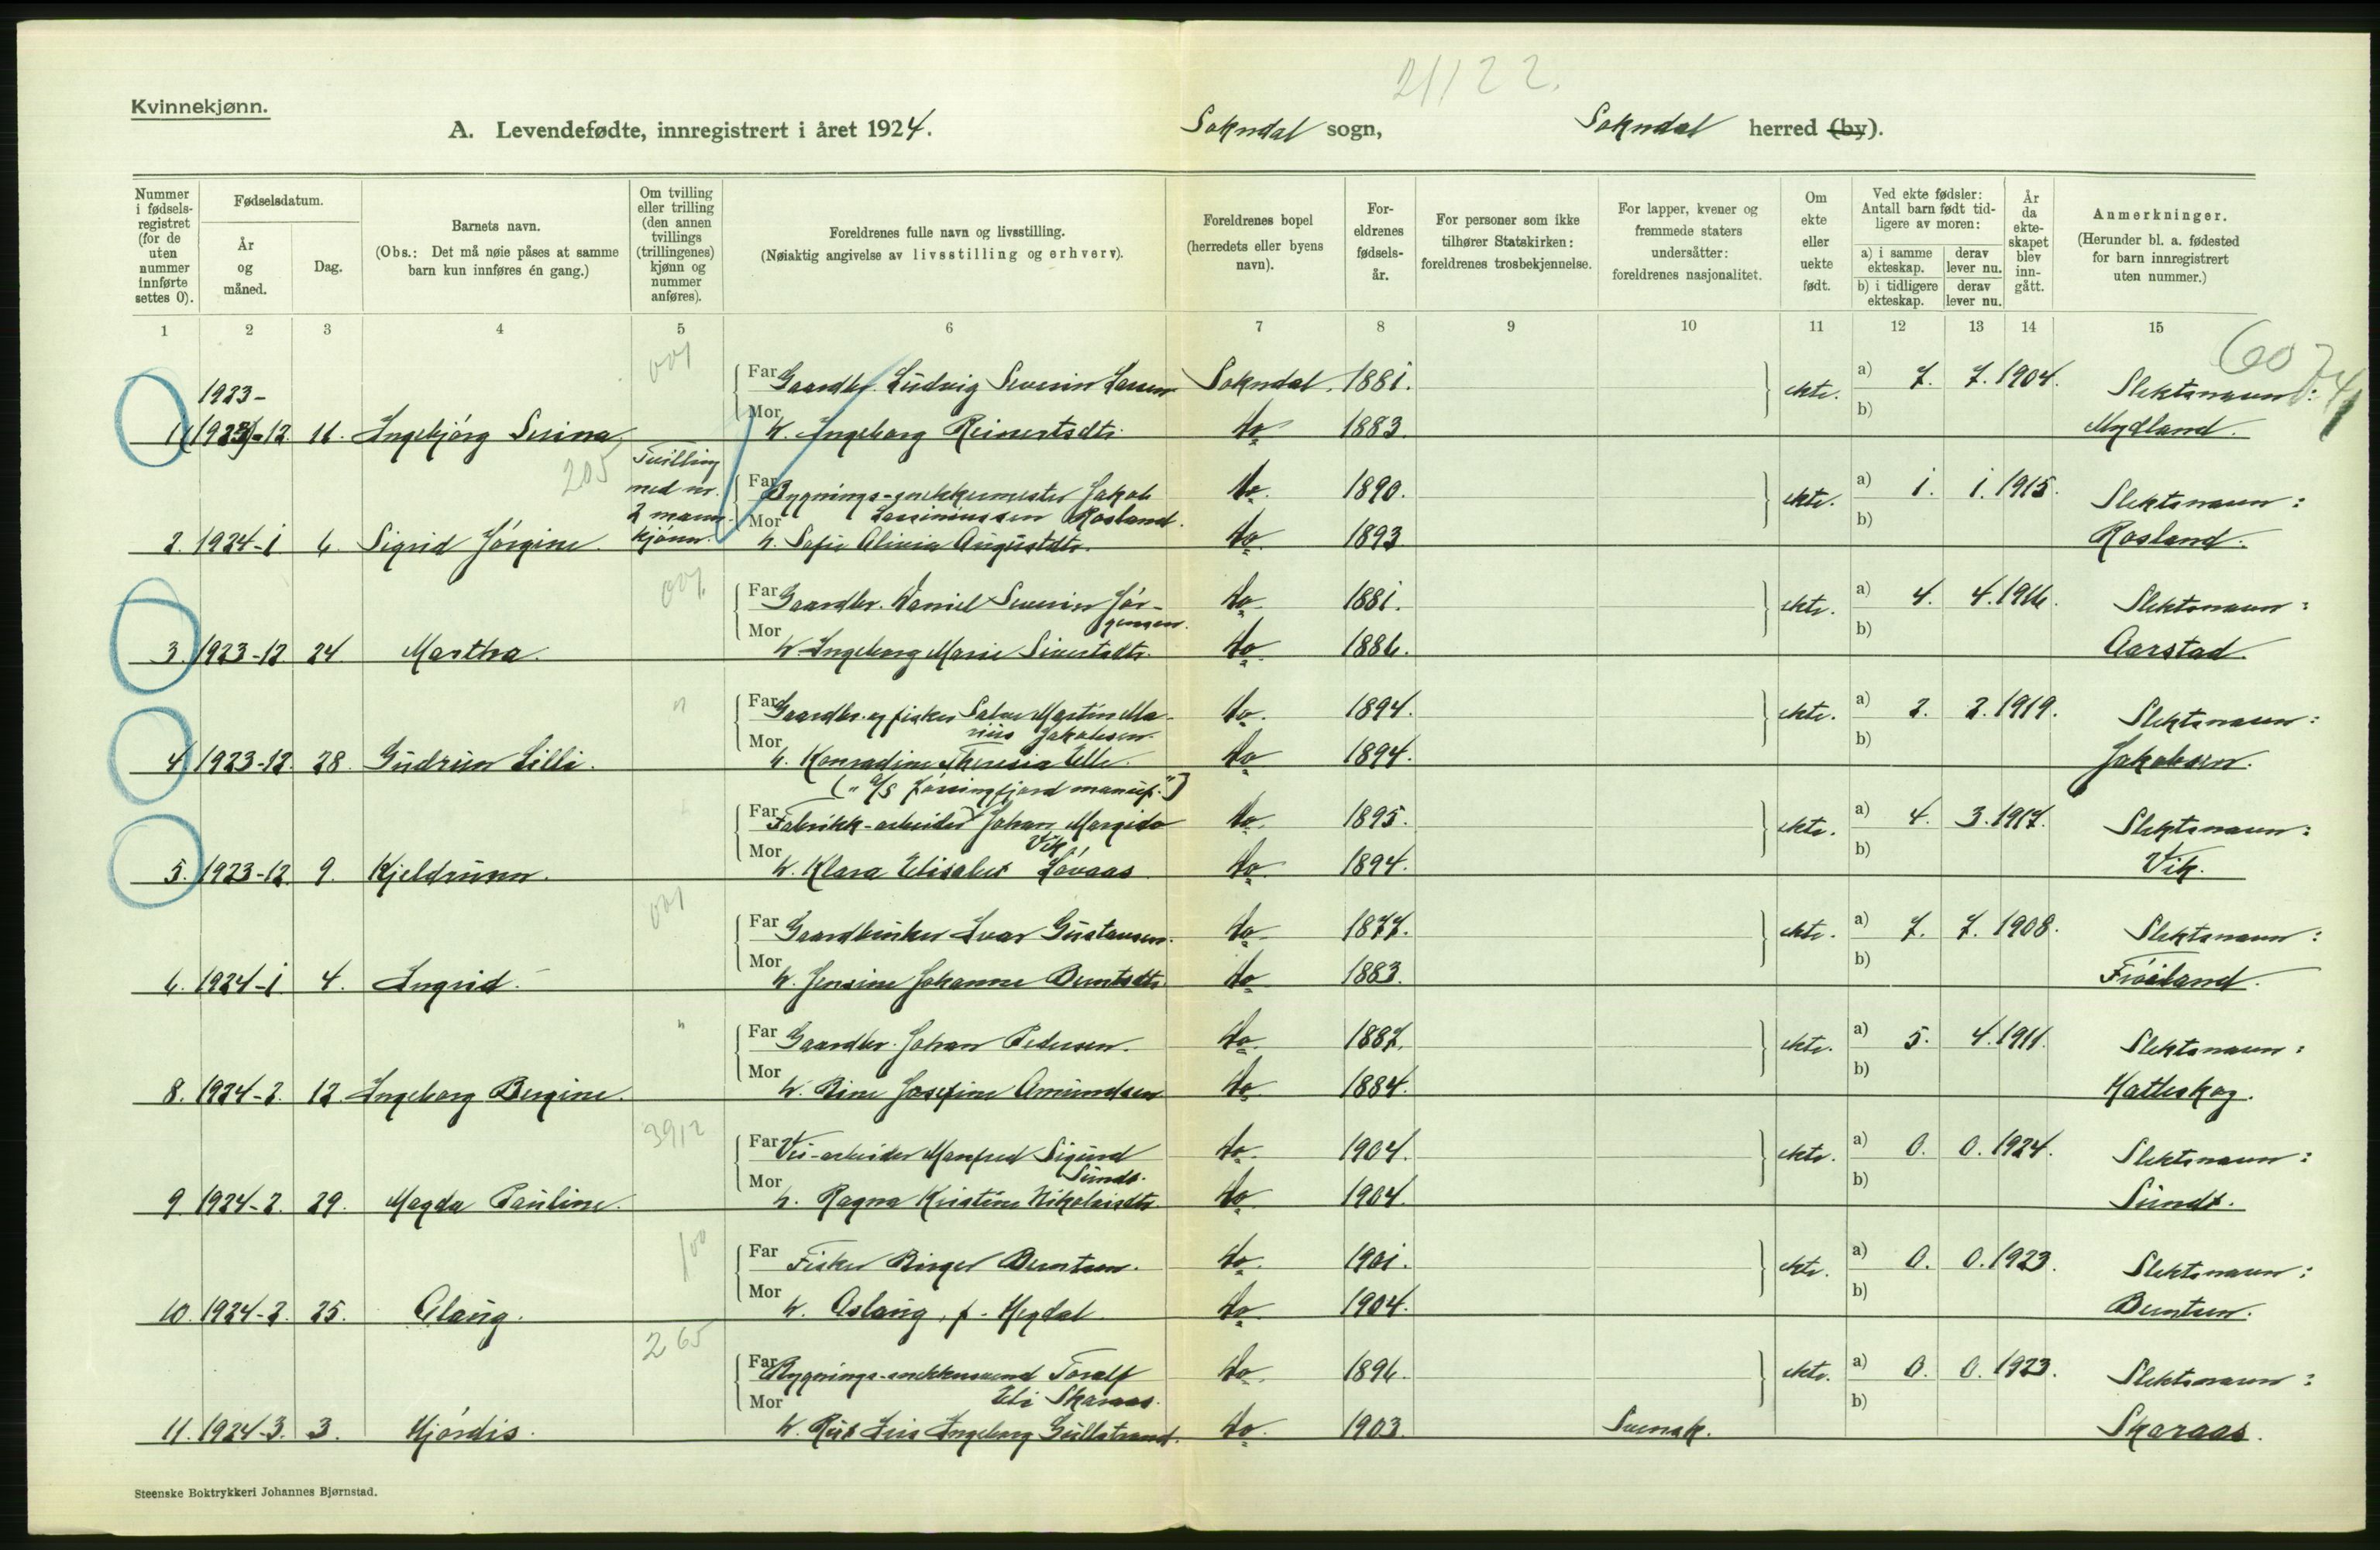 21/22.
Kvinnekjønn.
A. Levendefødte, innregistrert i året 1924. Sokndal sogn, Sokndal herred (by).
Nummer i fødsels-registret (for de uten nummer innførte settes 0).
Fødselsdatum.
År og måned.
Dag.
Barnets navn.
(Obs.: Det må nøie påses at samme barn kun innføres én gang.)
Om tvilling eller trilling (den annen tvillings (trillingenes) kjønn og nummer anføres).
Foreldrenes fulle navn og livsstilling.
(Nøiaktig angivelse av livsstilling og erhverv).
Foreldrenes bopel (herredets eller byens navn).
For-eldrenes fødsels-år.
For personer som ikke tilhører Statskirken: foreldrenes trosbekjennelse.
For lapper, kvener og fremmede staters undersåtter: foreldrenes nasjonalitet.
Om ekte eller uekte født.
Ved ekte fødsler: Antall barn født tid-ligere av moren:
a) i samme ekteskap. derav lever nu.
b) i tidligere ekteskap. derav lever nu.
År da ekte-skapet blev inn-gått.
Anmerkninger.
(Herunder bl. a. fødested for barn innregistrert uten nummer.)
1 2 3 4 5 6 7 8 9 10 11 12 13 14 15
001
Far Gaardbr. Ludvig Severin Larsen Sokndal. 1881. ekte. a) 7. 7. 1904. Slektsnavn:
1923-
1. (1923)-12. 11. Ingebjörg Serina. Mor h. Ingeborg Reinertsdtr. do 1883. b) Mydland.
205
Tvilling
med nr.
2 mann-
kjönn.
Far Bygnings-snekkermester Jakob do. 1890. ekte. a) 1. 1. 1915. Slektsnavn:
Lassiniussen Rosland.
2. 1924-1 6. Sigrid Jörgine. Mor h. Sofie Olivia Augustdtr. do. 1893. b) Rosland.
001.
Far Gaardbr. Daniel Severin Jör- do. 1881. ekte. a) 4. 4. 1916. Slektsnavn:
gensen.
3. 1923-12. 24. Martha. Mor h. Ingeborg Marie Sivertsdtr. do 1886. b) Aarstad.
"
Far Gaardbr. og fisker Salve Martin Ma- do. 1894. ekte. a) 2. 2. 1919. Slektsnavn:
rius Jakobsen.
4. 1923-12. 28. Gudrun Lilli. Mor h. Konradine Theresia Elle. do 1894. b) Jakobsen.
(" A/S Jössingfjord manuf.")
Far Fabrikk-arbeider Johan Margido do. 1895. ekte. a) 4. 3. 1917. Slektsnavn:
Vik
5. 1923-12. 9. Kjeldrunn. Mor h. Klara Elisabet Lövaas do. 1894. b) Vik.
001
Far Gaardbruker Ivar Gustavsen. do. 1877. ekte. a) 7. 7. 1908. Slektsnavn:
6. 1924-1 4. Ingrid. Mor h. Jensine Johanne Berntsdtr. do 1883. b) Fröiland.
"
Far Gaardbr. Johan Pedersen. do. 1887. ekte. a) 5. 4. 1911. Slektsnavn:
8. 1924-2. 12. Ingeborg Bergine. Mor h. Rine Josefine Amundsen do. 1884. b) Hatleskog.
3912
Far Vei-arbeider Manfred Sigurd do. 1904. ekte. a) 0. 0. 1924. Slektsnavn:
Sundt.
9. 1924-2. 29. Magda Pauline. Mor h. Ragna Kristine Nikolaisdtr. do. 1904. b) Sundt.
100
Far Fisker Birger Berntsen. do. 1901. ekte. a) 0. 0. 1923. Slektsnavn:
10. 1924-2. 25. Olaug. Mor h. Aslaug, f. Hegdal. do. 1904. b) Berntsen.
265
Far Bygnings-snekkersvend Toralf do. 1896. ekte. a) 0. 0. 1923. Slektsnavn:
Eli Skaraas.
11. 1924-3. 3. Hjördis. Mor h. Rut Iris Ingeborg Gullstrand. do. 1903. Svensk. b) Skaraas.
Steenske Boktrykkeri Johannes Bjørnstad.